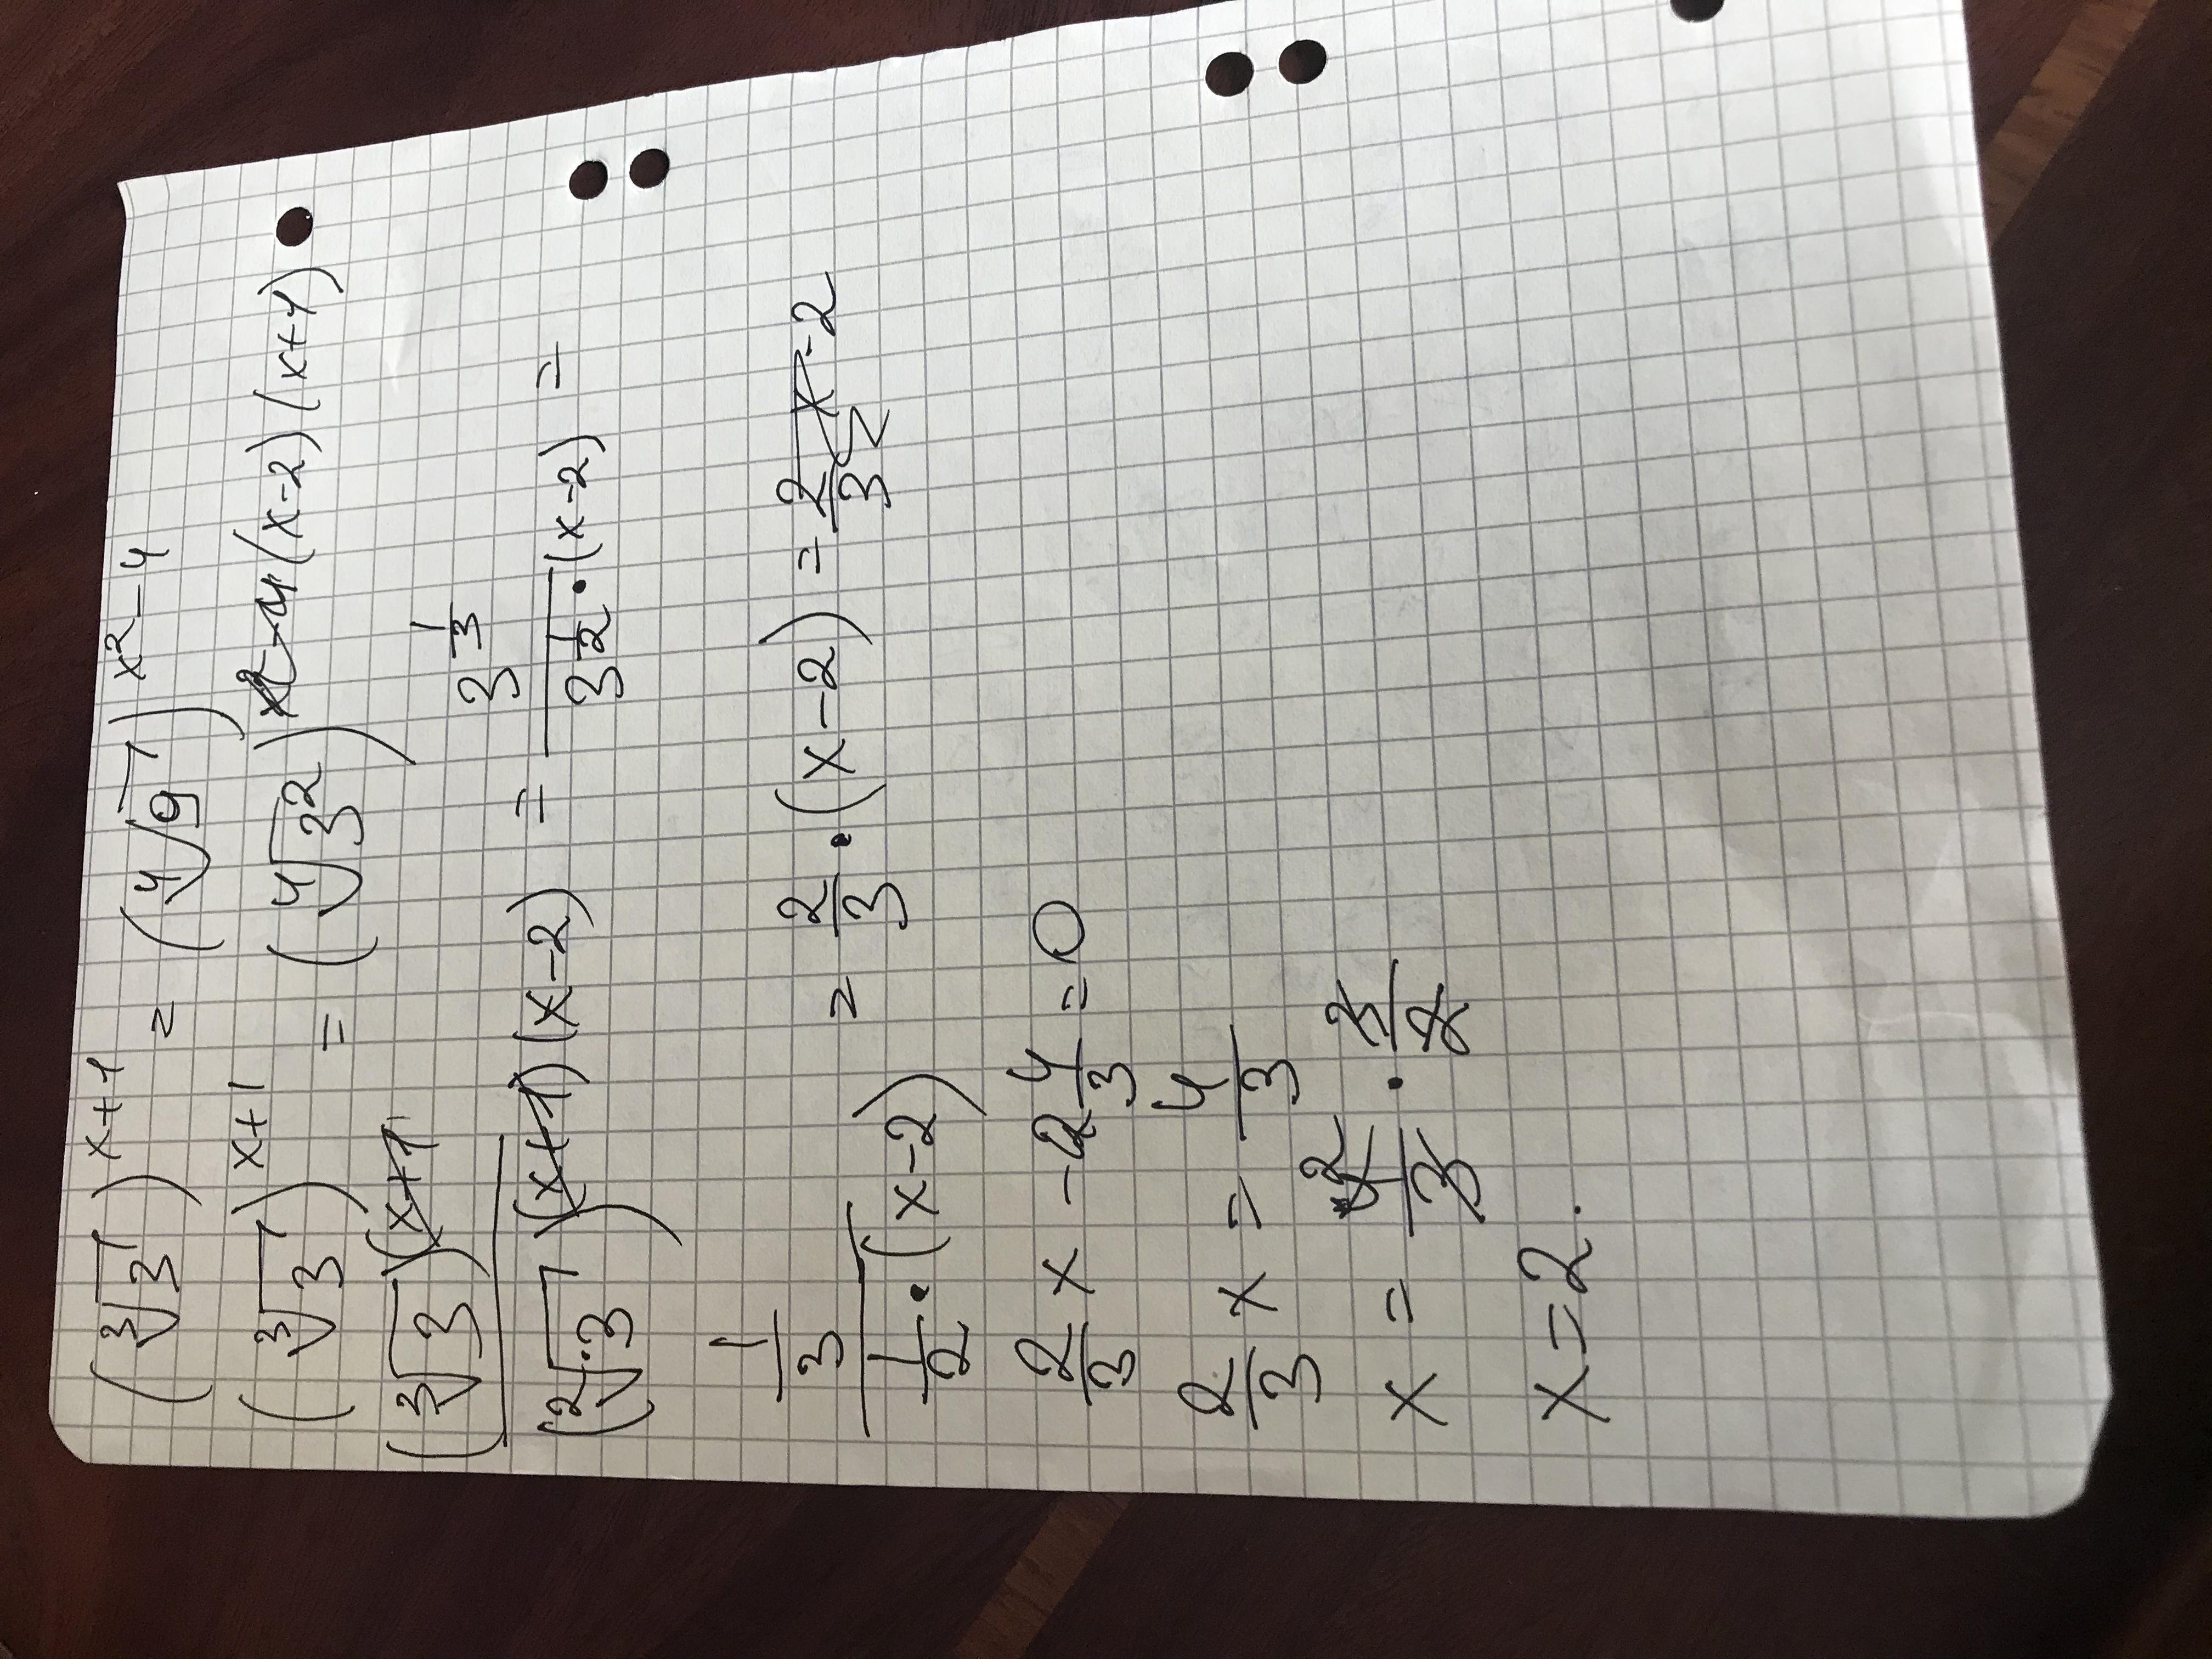 (∛3)^(x+1) = (∜9)^(x²-4)
(∛3)^(x+1) = (∜3²)^((x-2)(x+1))
(∛3)^((x+1)) / (²√3)^((x+1)(x-2)) = 3^(1/3) / 3^(1/2)·(x-2) =
(1/3) / (1/2·(x-2)) = 2/3·(x-2) = 2/3 x-2
2/3 x - 4/3 = 0
2/3 x = 4/3
x = 4/3 · 3/2
x=2.